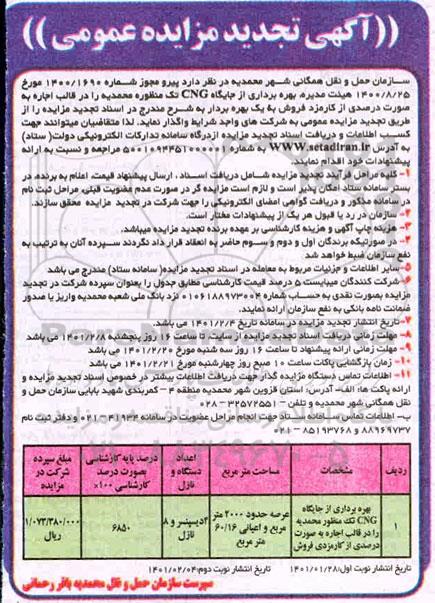 ((آگهی تجدید مزایده عمومی))
سازمان حمل و نقل همگانی شهر محمدیه در نظر دارد پیرو مجوز شماره ۱۴۰۰/۱۶۹۰ مورخ
۱۴۰۰/۸/۲۵ هیئت مدیره، بهره برداری از جایگاه CNG تک منظوره محمدیه را در قالب اجاره به
صورت درصدی از کارمزد فروش به یک بهره بردار به شرح مندرج در اسناد تجدید مزایده را از
طریق تجدید مزایده عمومی به شرکت های واجد شرایط واگذار نماید. لذا متقاضیان میتوانند جهت
کسب اطلاعات و دریافت اسناد تجدید مزایده ازدرگاه سامانه تدارکات الکترونیکی دولت( ستاد)
به آدرس WWW.setadiran.ir به شماره ۵۰۰۱۰۹۴۴۵۱۰۰۰۰۰۱ مراجعه و نسبت به ارائه
پیشنهادات خود اقدام نمایند.
۱- کلیه مراحل فرآیند تجدید مزایده شامل دریافت اسناد ، ارسال پیشنهاد قیمت، اعلام به برنده، در
بستر سامانه ستاد امکان پذیر است و لازم است مزایده گر در صورت عدم عضویت قبلی، مراحل ثبت نام
در سامانه مذکور و دریافت گواهی امضای الکترونیکی را جهت شرکت در تجدید مزایده محقق سازند.
۲- سازمان در رد یا قبول هر یک از پیشنهادات مختار است.
۳- هزینه چاپ آگهی و هزینه کارشناسی بر عهده برنده تجدید مزایده میباشد.
۴- در صورتیکه برندگان اول و دوم و سوم حاضر به انعقاد قرار داد نگردند سپرده آنان به ترتیب به
نفع سازمان ضبط خواهد شد
۵- سایر اطلاعات و جزئیات مربوط به معامله در اسناد تجدید مزایده( سامانه ستاد) مندرج می باشد
۶- شرکت کنندگان میبایست ۵ درصد قیمت کارشناسی مطابق جدول را بعنوان سپرده شرکت در تجدید
مزایده بصورت نقدی به حساب شماره ۰۱۰۶۱۸۸۹۷۳۰۰۴ نزد بانک ملی شعبه محمدیه واریز یا صدور
ضمانت نامه بانکی به نفع سازمان ارائه نمایند.
۷- تاریخ انتشار تجدید مزایده در سامانه تاریخ ۱۴۰۱/۲/۴ می باشد.
۸- مهلت زمانی دریافت اسناد تجدید مزایده از سایت، تا ساعت ۱۶ روز پنجشنبه ۱۴۰۱/۲/۸ می باشد
۹- مهلت زمانی ارائه پیشنهاد تا ساعت ۱۶ روز سه شنبه مورخ ۱۴۰۱/۲/۲۰ می باشد
۱۰- زمان بازگشایی پاکات ساعت ۱۰ صبح روز چهارشنبه مورخ ۱۴۰۱/۲/۲۱ می باشد
۱۱- اطلاعات تماس دستگاه مزایده گذار جهت دریافت اطلاعات بیشتر در خصوص اسناد تجدید مزایده و
ارائه پاکت ها: الف- آدرس: استان قزوین شهر محمدیه منطقه ۴ – کمربندی شهید بابایی سازمان حمل و
نقل همگانی شهر محمدیه و تلفن: ۳۲۵۷۲۵۵۱ – ۰۲۸
ب- اطلاعات تماس سامانه ستاد جهت انجام مراحل عضویت در سامانه ۴۱۹۳۴-۰۲۱ و دفتر ثبت نام
۸۸۹۶۹۷۳۷ و ۸۵۱۹۳۷۶۸ – ۰۲۱
ردیف | مشخصات | مساحت متر مربع | تعداد دستگاه و نازل | درصد پایه کارشناسی بصورت درصد کارشناسی ۱۰۰× | مبلغ سپرده شرکت در مزایده
۱ | بهره برداری از جایگاه CNG تک منظور محمدیه را در قالب اجاره به صورت درصدی از کارمزدی فروش | عرصه حدود ۲۰۰۰ متر مربع و اعیانی ۶۰/۱۶ متر مربع | ۴دیسپنسر و ۸ نازل | ۶۸۵۰ | ۱/۰۷۳/۳۸۰/۰۰۰ ریال
تاریخ انتشار نوبت اول: ۱۴۰۱/۰۱/۲۸ تاریخ انتشار نوبت دوم: ۱۴۰۱/۰۲/۰۴
سرپرست سازمان حمل و نقل محمدیه باقر رحمانی